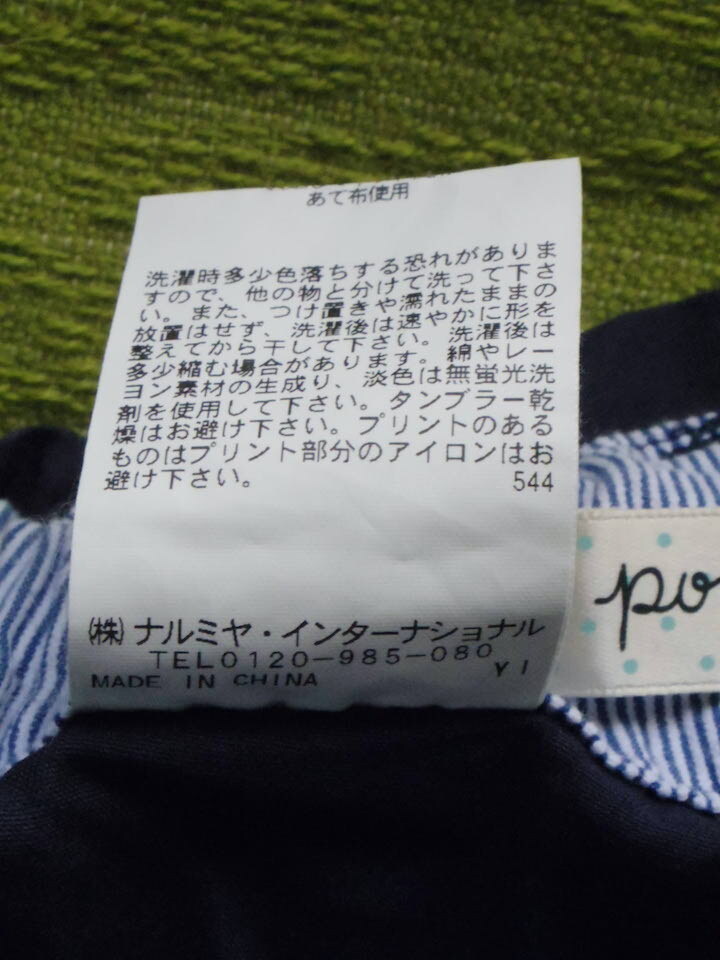 あて布使用
洗濯時多少色落ちする恐れがありま
すので、他の物と分けて洗って下さ
い。また、つけ置きや濡れたままの
放置はせず、洗濯後は速やかに形を
整えてから干して下さい。洗濯後は
多少縮む場合があります。綿やレー
ヨン素材の生成り、淡色は無蛍光洗
剤を使用して下さい。タンブラー乾
燥はお避け下さい。プリントのある
ものはプリント部分のアイロンはお
避け下さい。 544
㈱ナルミヤ・インターナショナル
TEL0120-985-080
MADE IN CHINA YI
po